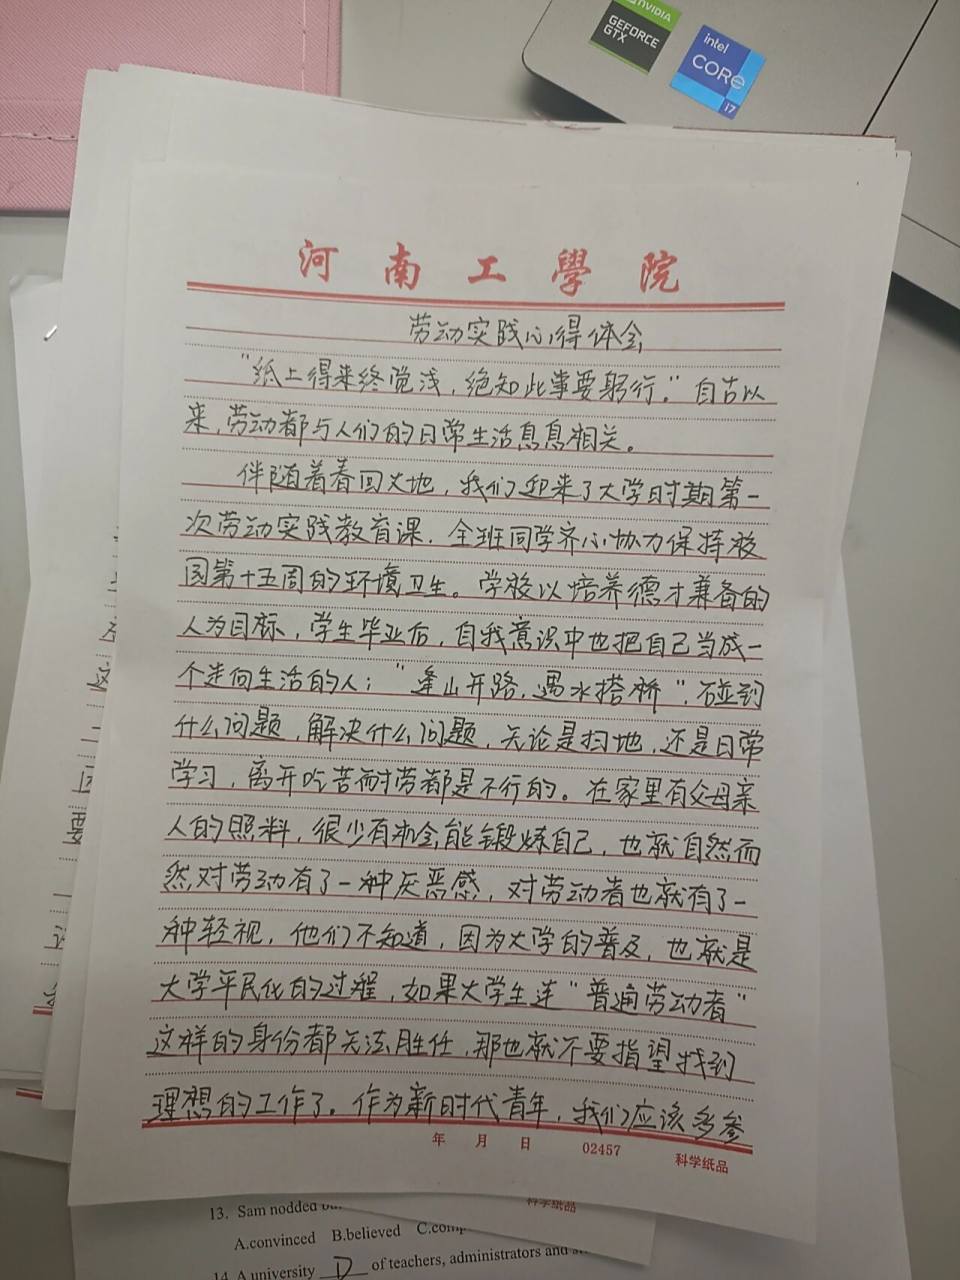 NVIDIA
GEFORCE
GTX
intel
CORe
i7
河南工學院
劳动实践心得体会
“纸上得来终觉浅，绝知此事要躬行。”自古以
来，劳动都与人们的日常生活息息相关。
伴随着春回大地，我们迎来了大学时期第一
次劳动实践教育课．全班同学齐心协力保持校
园第十五周的环境卫生。学校以培养德才兼备的
人为目标，学生毕业后，自我意识中也把自己当成一
个走向生活的人；“逢山开路，遇水搭桥”．碰到
什么问题，解决什么问题，无论是扫地，还是日常
学习，离开吃苦耐劳都是不行的。在家里有父母亲
人的照料，很少有机会能锻炼自己，也就自然而
然对劳动有了一种厌恶感，对劳动者也就有了一
种轻视，他们不知道，因为大学的普及，也就是
大学平民化的过程，如果大学生连“普通劳动者”
这样的身份都无法胜任，那也就不要指望找到
理想的工作了。作为新时代青年，我们应该多参
年 月 日 02457 科学纸品
科学纸品
13. Sam nodded
A.convinced B.believed
14. A university D of teachers, administrators and